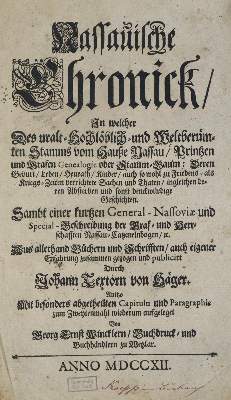 Nassauische
Chronick/
In welcher
Des uralt-Hochlöblich-und Weltberüm-
ten Stamms vom Hauße Nassau/ Printzen
und Grafen Genealogie oder Stamm-Baum: Deren
Geburt/ Leben/ Heurath/ Kinder/ auch sowohl zu Friedens- als
Kriegs-Zeiten verrichtete Sachen und Thaten/ ingleichen de-
ren Absterben und sonst denckwürdige
Geschichten.
Sambt einer kurtzen General-Nassoviæ und
Special-Beschreibung der Graf- und Herr-
schafften Nassau-Catzenelnbogen/ ec.
Aus allerhand Büchern und Schrifften/ auch eigener
Erfahrung zusammen gezogen und publicirt
Durch
Johann Textorn von Häger.
Anitzo
Mit besonders abgetheilten Capituln und Paragraphis
zum Zweytenmahl wiederum aufgeleget
Von
Georg Ernst Wincklern/ Buchdruck- und
Buchhändlern zu Wetzlar.
ANNO MDCCXII.